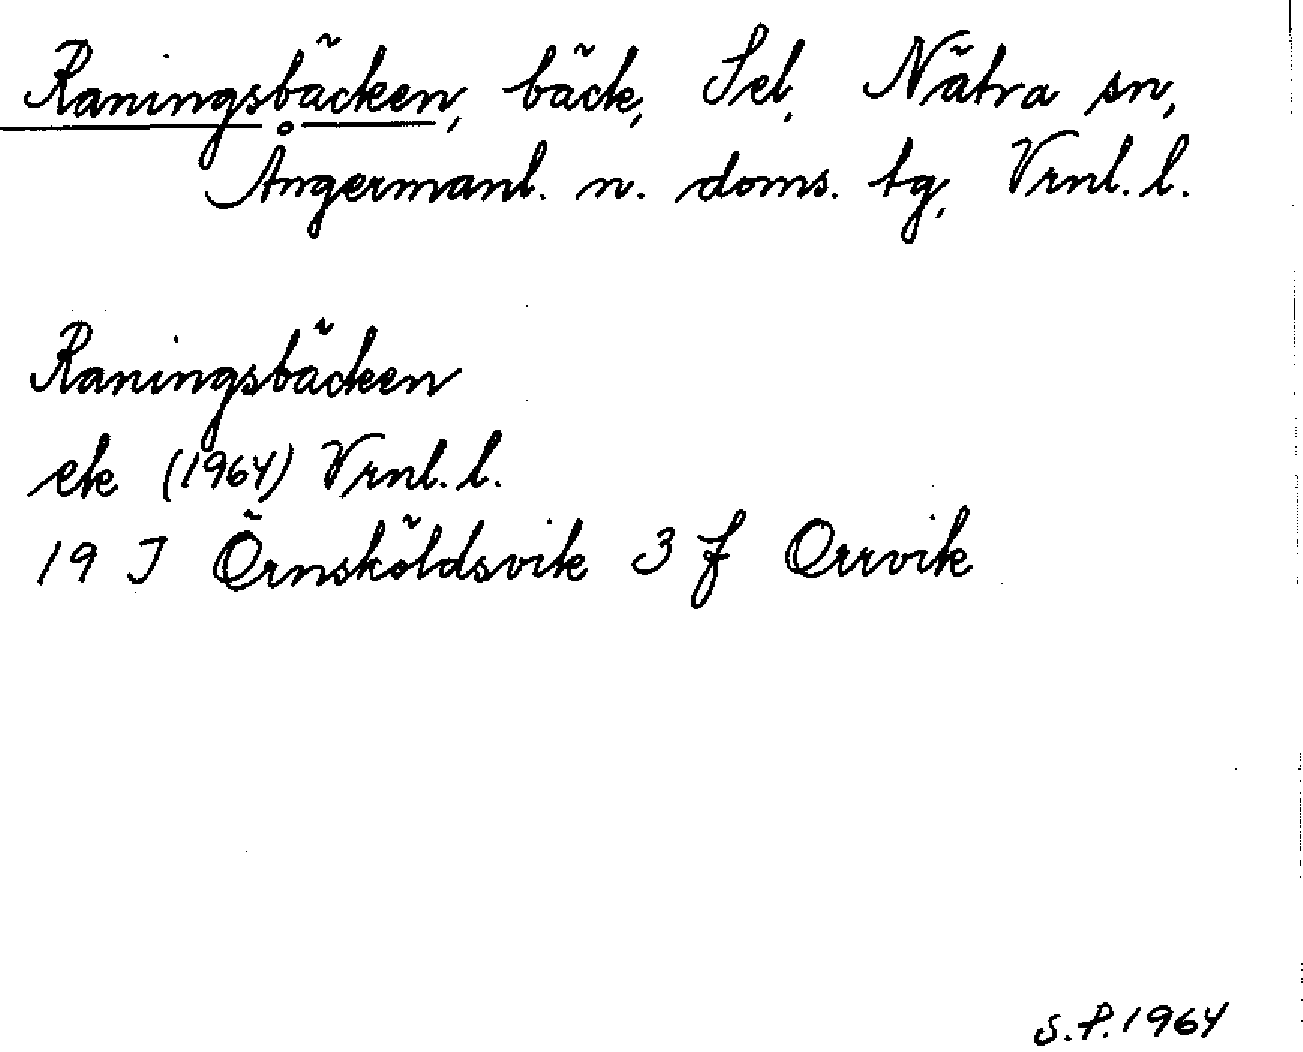 Raningsbäcken, bäck, Sel, Nätra sn,
Ångermanl. n. doms. tg, Vrnl. l.
Raningsbäcken
ek (1964) Vrnl. l.
19 J Örnsköldsvik 3 f Orrvik
S.P. 1964